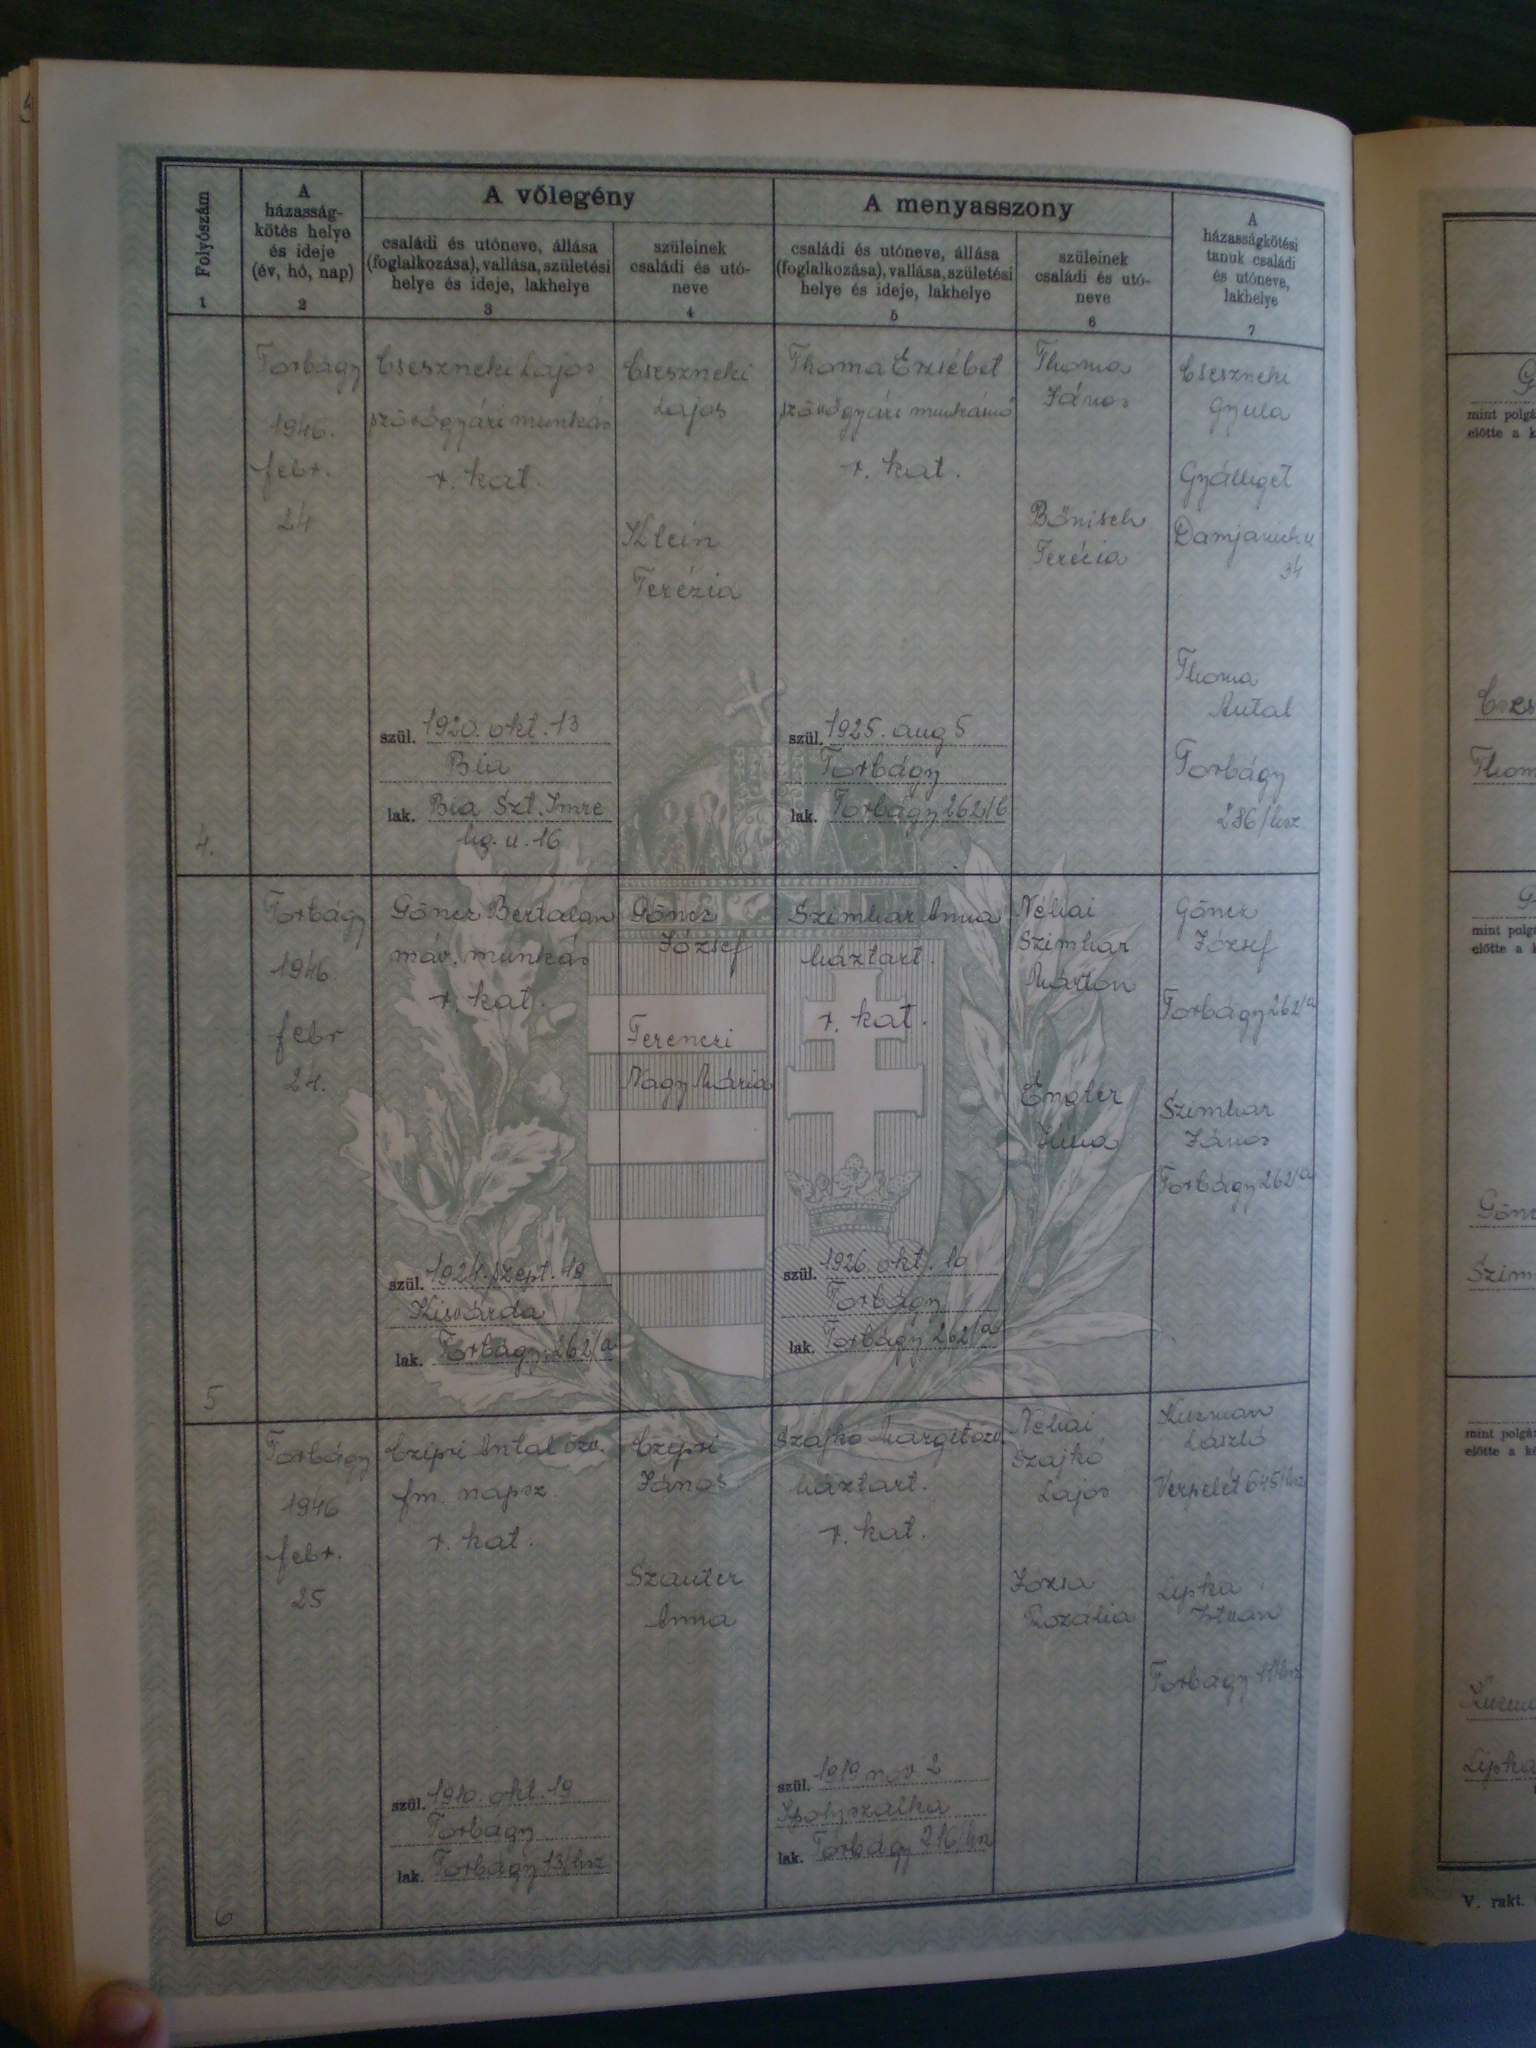 Folyószám
1
A
házasság-
kötés helye
és ideje
(év, hó, nap)
2
A vőlegény
családi és utóneve, állása
(foglalkozása), vallása, születési
helye és ideje, lakhelye
3
szüleinek
családi és utó-
neve
4
A menyasszony
családi és utóneve, állása
(foglalkozása), vallása, születési
helye és ideje, lakhelye
5
szüleinek
családi és utó-
neve
6
A
házasságkötési
tanuk családi
és utóneve,
lakhelye
7
4.
Torbágy
1946.
febr.
24
Cseszneki Lajos
szövőgyári munkás
r. kat.
szül. 1920. okt. 13
Bia
lak. Bia Szt. Imre
hg. u. 16
Cseszneki
Lajos
Klein
Terézia
Thoma Erzsébet
szövőgyári munkásnő
r. kat.
szül. 1925. aug 5
Torbágy
lak. Torbágy 262/b
Thoma
János
Bőnisch
Terézia
Cseszneki
Gyula
Gyálliget
Damjanich u.
34
Thoma
Antal
Torbágy
286/hsz
5
Torbágy
1946
febr
24.
Göncz Bertalan
máv. munkás
r. kat.
szül. 1924. szept. 19
Kisvárda
lak. Torbágy 262/a
Göncz
József
Ferenczi
Nagy Mária
Szimhar Anna
háztart.
r. kat.
szül. 1926. okt. 10
Torbágy
lak. Torbágy 262/a
Néhai
Szimhar
Márton
Engler
Anna
Göncz
József
Torbágy 262/a
Szimhar
János
Torbágy 262/a
6
Torbágy
1946
febr.
25
Czipri Antal özv.
fm. napsz.
r. kat.
szül. 1910. okt. 19
Torbágy
lak. Torbágy 13/hsz
Czipri
János
Szauter
Anna
Szajkó Margit özv.
háztart.
r. kat.
szül. 1919 nov. 2
Ipolyszalka
lak. Torbágy 216/hsz
Néhai
Szajkó
Lajos
Józsa
Rozália
Kuzman
László
Verpelét 645/hsz
Lipka
István
Torbágy
mint polgá
előtte a k
Thom
Gönc
mint polgá
előtte a k
Szim
mint polgá
előtte a ké
Lipka
V. rakt.